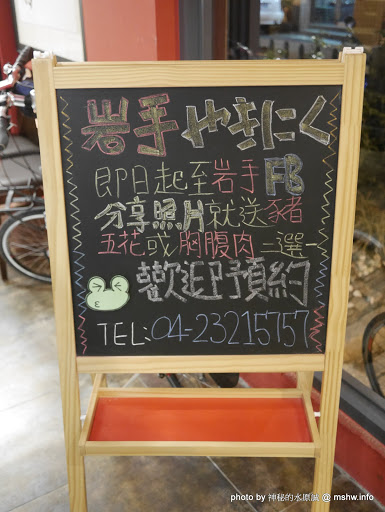 岩手やきにく
即日起至岩手FB
分享照片就送豬
五花或胸腹肉二選一
歡迎預約
TEL:04-23215757
photo by 神秘的水原誠 @ mshw.info